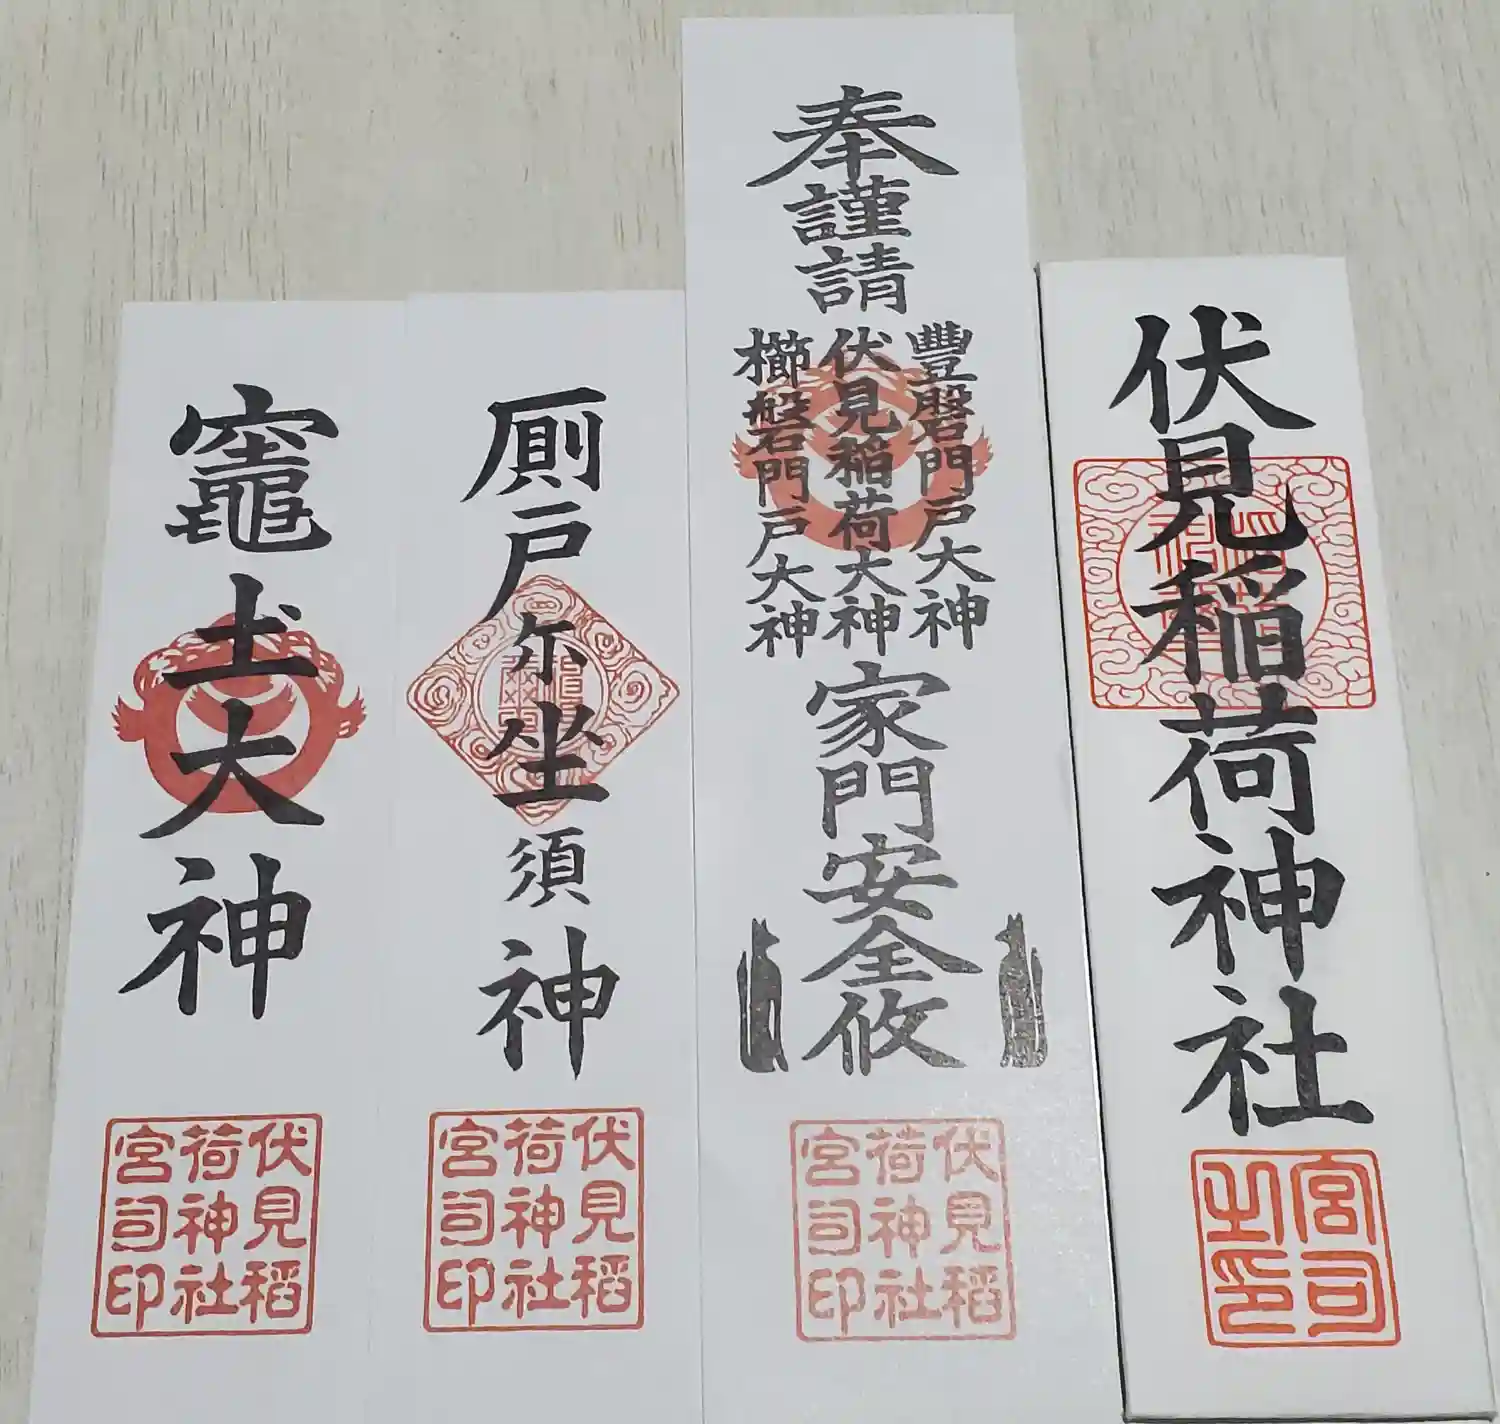 伏見稲荷神社
宮司
之印
奉謹請
豐磐門戸大神
伏見稲荷大神
櫛磐門戸大神
家門安全攸
伏見稻
荷神社
宮司印
厠戸尓坐須神
伏見稻
荷神社
宮司印
竈圡大神
伏見稻
荷神社
宮司印